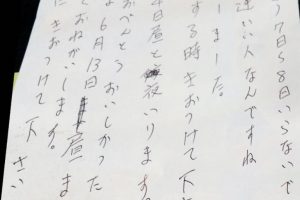 7日ら8日いらないで
達いい人なんですね
ーました。
する時きおつけて下
4日昼と夜いります
おべんとうおいしかった
6月13日昼ま
ておねがいします。
にきおつけて下さい